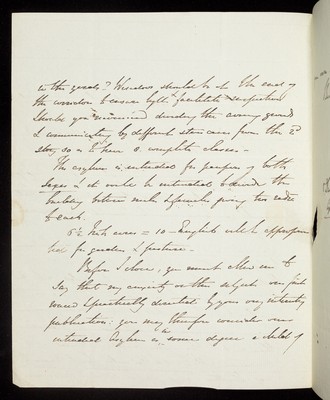 in the yards? Windows should be at the end of
the corridor to convey light & facilitate inspection
Should you recommend dividing the airing ground
& communicating by different stair cases from the 2d
story so as to have 8 complete classes –
The asylum is intended for paupers of both
sexes & it would be intended to divide the
building between male & females giving two sides
to each.
6½ Irish acres = 10 – English will be appropriated
for garden & pasture –
Before I close, you must allow me to
say that my enquiries on this subject were first
& practically directed by your very interesting
publication; you may therefore consider our
intended Asylum in some degree a child of